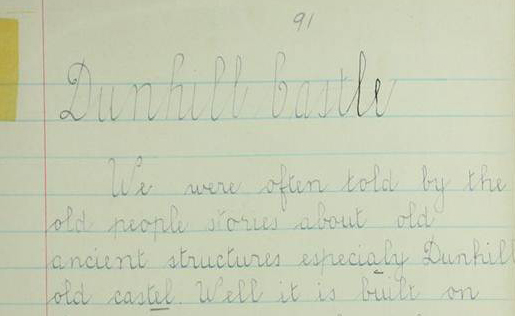 91
Dunhill Castle
We were often told by the
old people stories about old
ancient structures especialy Dunhill
old castel. Well it is built on